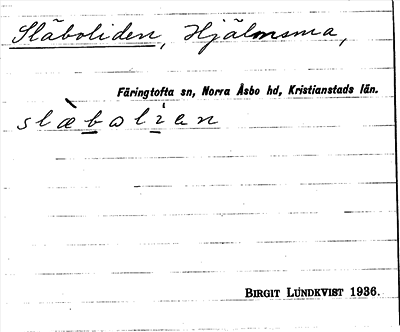 Släboliden, Hjälmsma,
Färingtofta sn, Norra Åsbo hd, Kristianstads län.
slæ̀b̲ol i̲en
BIRGIT LUNDKVIST 1936.